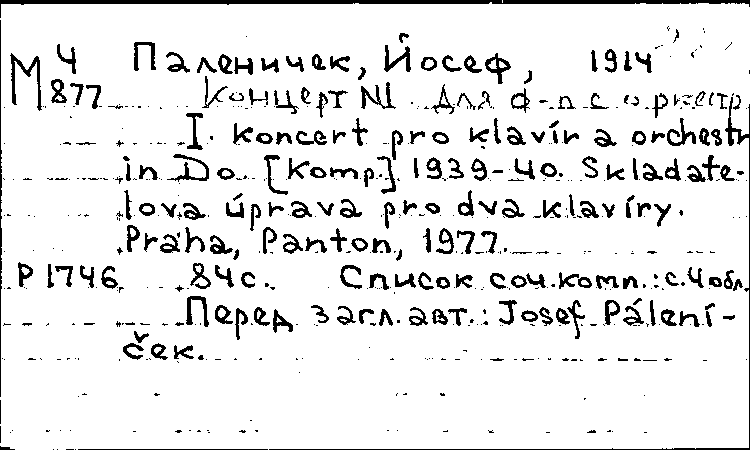 М 4 Паленичек, Йосеф, 1914
877 Концерт N1 для ф-п с оркестр
I. koncert pro klavír a orchestr
in Do. [Komp.] 1939-40. Skladate-
lova úprava pro dva klavíry.
Praha, Panton, 1977.
P1746 84 с. Список соч. комп.: с. 4 обл.
Перед загл. авт.: Josef Pálení-
ček.